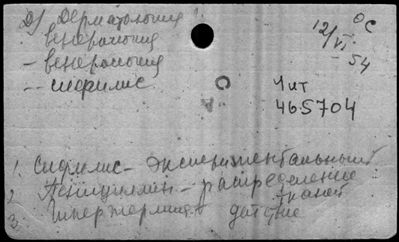 Д/ Дерматология
венерология
- венерология
- сифилис
ОС
12/VI-54
С
А
Чит
465704
1. Сифилис - экспериментальный
2. Пенициллин - распределение
тканей
3. действие